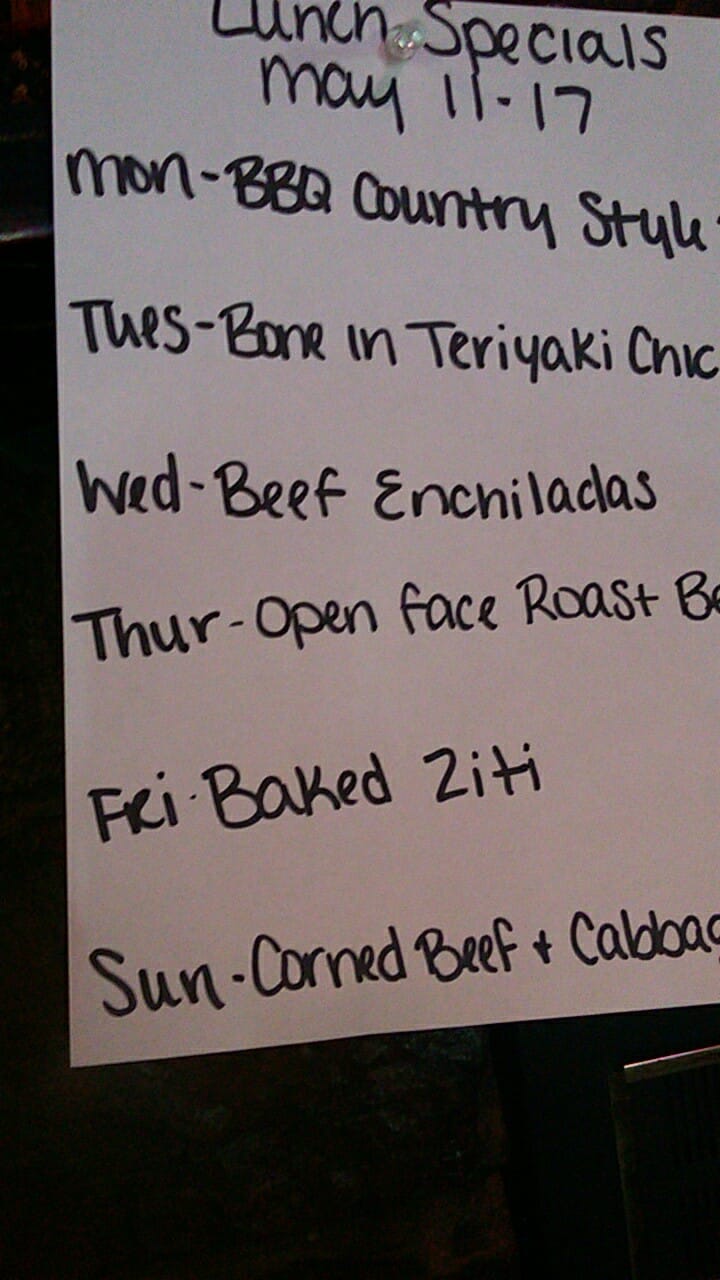 Lunch Specials
May 11-17
Mon-BBQ Country Style
Tues-Bone in Teriyaki Chic
Wed-Beef Enchiladas
Thur-Open face Roast Be
Fri-Baked Ziti
Sun-Corned Beef + Cabbag